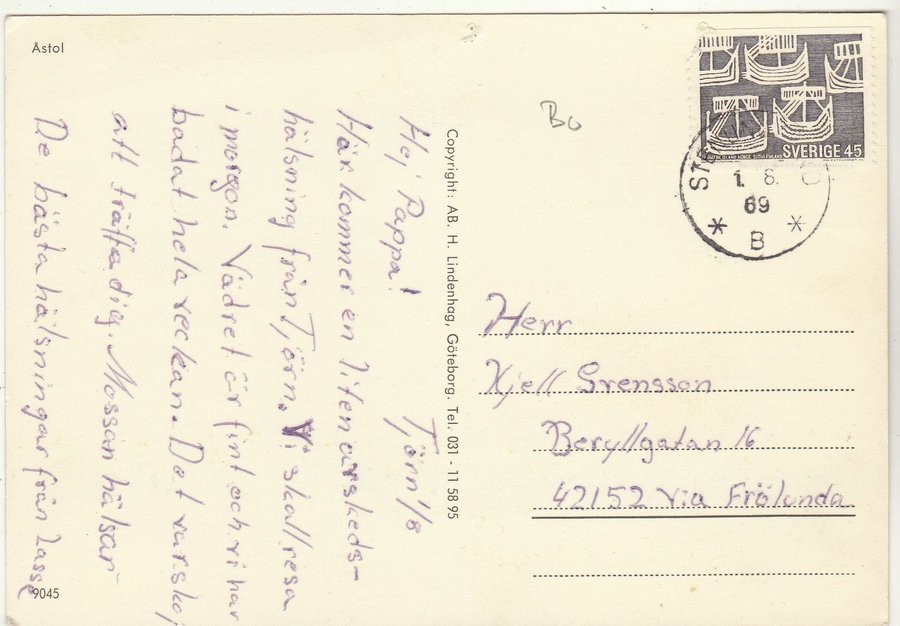 Åstol
Hej Pappa! Tjörn 1/8
Här kommer en liten avskeds-
hälsning från Tjörn. Vi skall resa
i morgon. Vädret är fint och vi har
badat hela veckan. Det var skoj
att träffa dig. Mossan hälsar
De bästa hälsningar från Lasse
9045
Copyright: AB. H. Lindenhag, Göteborg. Tel. 031 - 11 58 95
Bo
SVERIGE 45
1. 8.
69
* B *
Herr
Kjell Svensson
Beryllgatan 16
42152 Via Frölunda